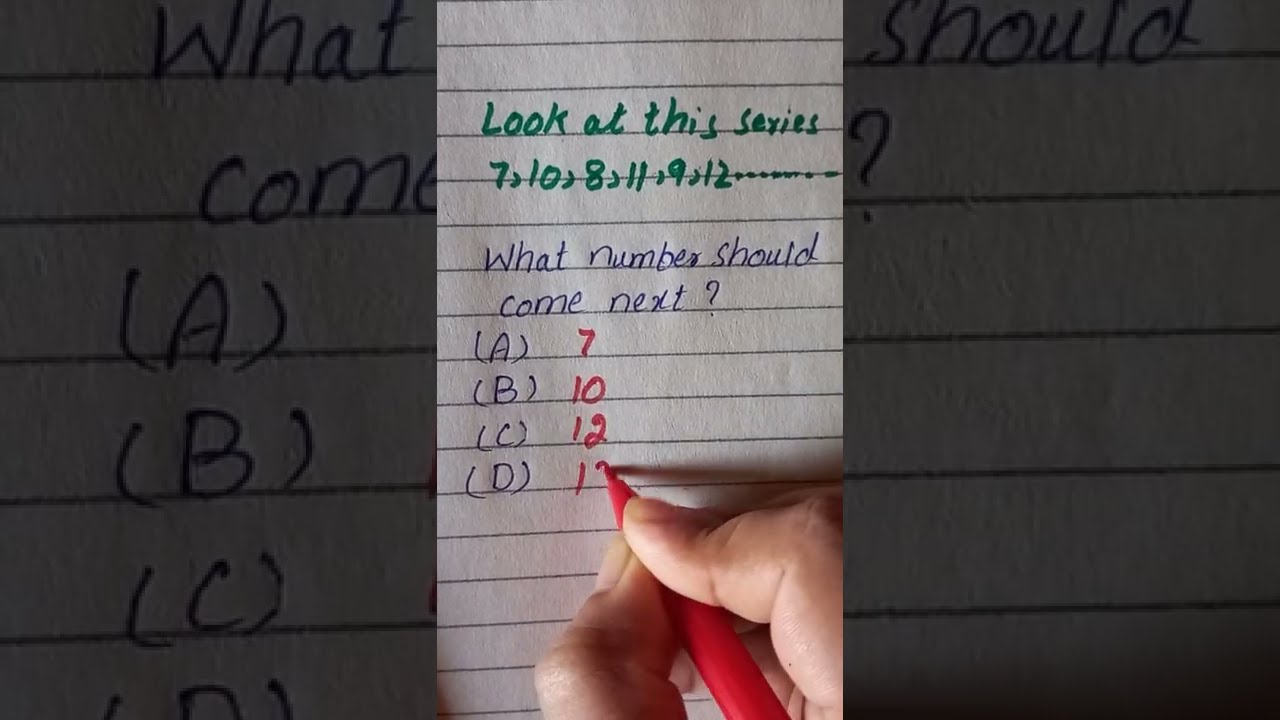 What
should
come
?
(A)
(B)
(C)
Look at this series
7,10,8,11,9,12.........
What number should
come next?
(A) 7
(B) 10
(C) 12
(D)